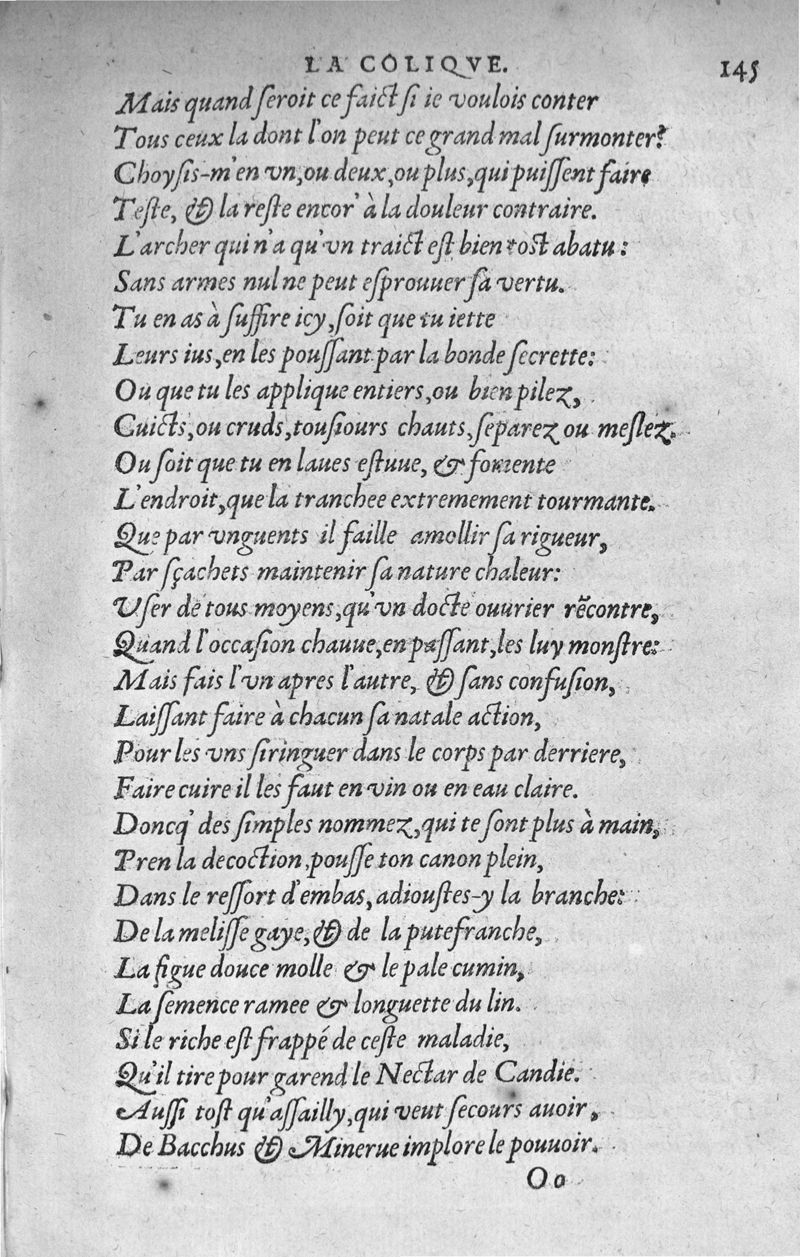 LA COLIQVE. 145
Mais quand ſeroit ce faict ſi ie voulois conter
Tous ceux la dont l'on peut ce grand mal ſurmonter?
Choyſis-m'en vn, ou deux, ou plus, qui puiſſent faire
Teſte, & la reſte encor' à la douleur contraire.
L'archer qui n'a qu'vn traict eſt bien toſt abatu:
Sans armes nul ne peut eſprouuer ſa vertu.
Tu en as à ſuffire icy, ſoit que tu iette
Leurs ius, en les pouſſant par la bonde ſecrette:
Ou que tu les applique entiers, ou bien pilez,
Cuicts, ou cruds, touſiours chauts, ſeparez ou meſlez.
Ou ſoit que tu en laues eſtuue, & fomente
L'endroit, que la tranchee extremement tourmante.
Que par vnguents il faille amollir ſa rigueur,
Par ſçachets maintenir ſa nature chaleur:
Vſer de tous moyens, qu'vn docte ouurier rẽcontre,
Quand l'occaſion chauue, en paſſant, les luy monſtre:
Mais fais l'vn apres l'autre, & ſans confuſion,
Laiſſant faire à chacun ſa natale action,
Pour les vns ſiringuer dans le corps par derriere,
Faire cuire il les faut en vin ou en eau claire.
Doncq' des ſimples nommez, qui te ſont plus à main,
Pren la decoction, pouſſe ton canon plein,
Dans le reſſort d'embas, adiouſtes-y la branche:
De la meliſſe gaye, & de la putefranche,
La figue douce molle & le pale cumin,
La ſemence ramee & longuette du lin.
Si le riche eſt frappé de ceſte maladie,
Qu'il tire pour garend le Nectar de Candie.
Auſſi toſt qu'aſſailly, qui veut ſecours auoir,
De Bacchus & Minerue implore le pouuoir.
Oo